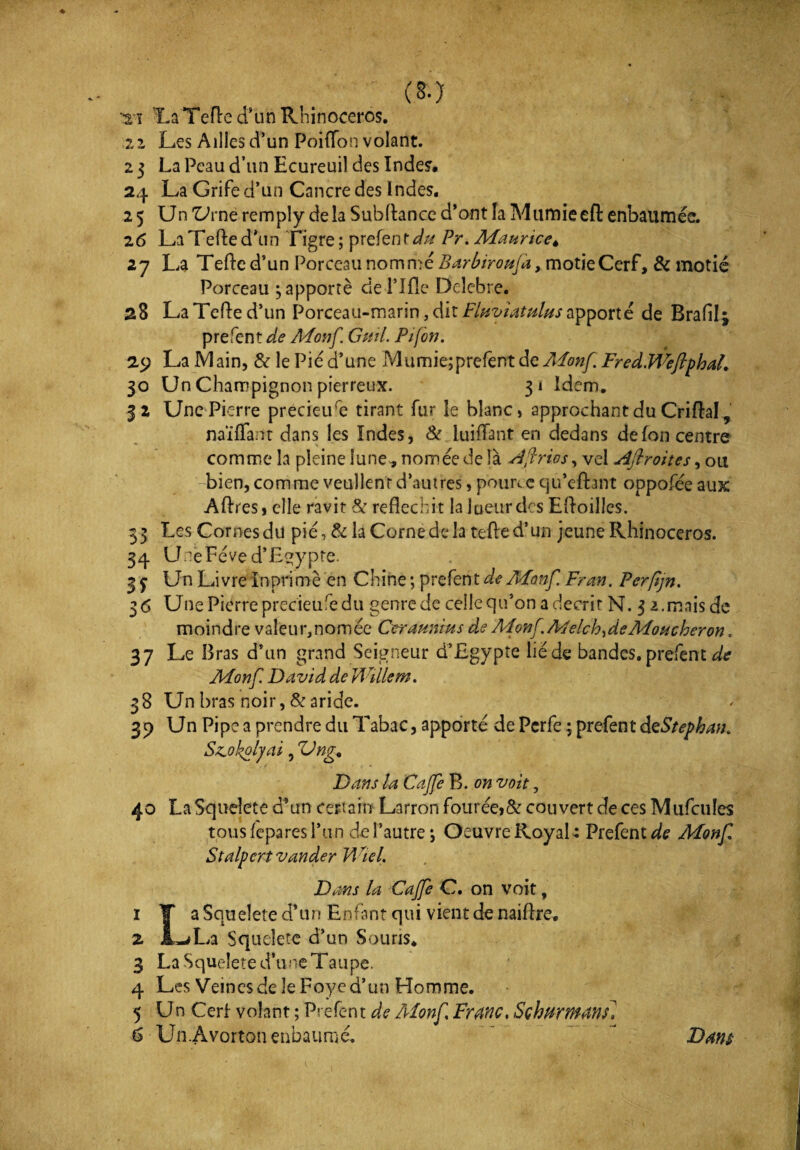 (8.)
21 La Teſte d'un Rhinoceros.
22 Les Ailles d'un Poiſſon volant.
23 La Peau d'un Ecureuil des Indes.
24 La Grife d'un Cancre des Indes.
25 Un Vrne remply de la Subſtance d'ont la Mumie eſt enbaumée.
26 La Teſte d'un Tigre; preſent du Pr. Maurice.
27 La Teſte d'un Porceau nommé Barbirouſa, motie Cerf, & motié
Porceau ; apportè de l'Iſle Delebre.
28 La Teſte d'un Porceau-marin, dit Fluviatulus apporté de Braſil;
preſent de Monſ. Guil. Piſon.
29 La Main, & le Pié d'une Mumie; preſent de Monſ. Fred. Weſtphal.
30 Un Champignon pierreux. 31 Idem.
32 Une Pierre precieuſe tirant ſur le blanc, approchant du Criſtal,
naïſſant dans les Indes, & luiſſant en dedans de ſon centre
comme la pleine lune, nomée de là Aſtrios, vel Aſtroites, ou
bien, comme veullent d'autres, pource qu'eſtant oppoſée aux
Aſtres, elle ravit & reflechit la lueur des Eſtoilles.
33 Les Cornes du pié, & la Corne de la teſte d'un jeune Rhinoceros.
34 Une Féve d'Egypte.
35 Un Livre Inprimè en Chine; preſent de Monſ. Fran. Perſijn.
36 Une Pierre precieuſe du genre de celle qu'on a decrit N. 32. mais de
moindre valeur, nomée Ceraunius de Monſ. Melch, de Moucheron.
37 Le Bras d'un grand Seigneur d'Egypte lié de bandes. preſent de
Monſ. David de Willem.
38 Un bras noir, & aride.
39 Un Pipe a prendre du Tabac, apporté de Perſe; preſent de Stephan.
Szokolyai, Vng.
Dans la Caſſe B. on voit,
40 La Squelete d'un certain Larron fourée, & couvert de ces Muſcules
tous ſepares l'un de l'autre; Oeuvre Royal: Preſent de Monſ.
Stalpert vander Wiel.
Dans la Caſſe C. on voit,
1 La Squelete d'un Enfant qui vient de naiſtre.
2 La Squelete d'un Souris.
3 La Squelete d'une Taupe.
4 Les Veines de le Foye d'un Homme.
5 Un Cerf volant; Preſent de Monſ. Franc. Schurmans.
6 Un Avorton enbaumé.
Dans